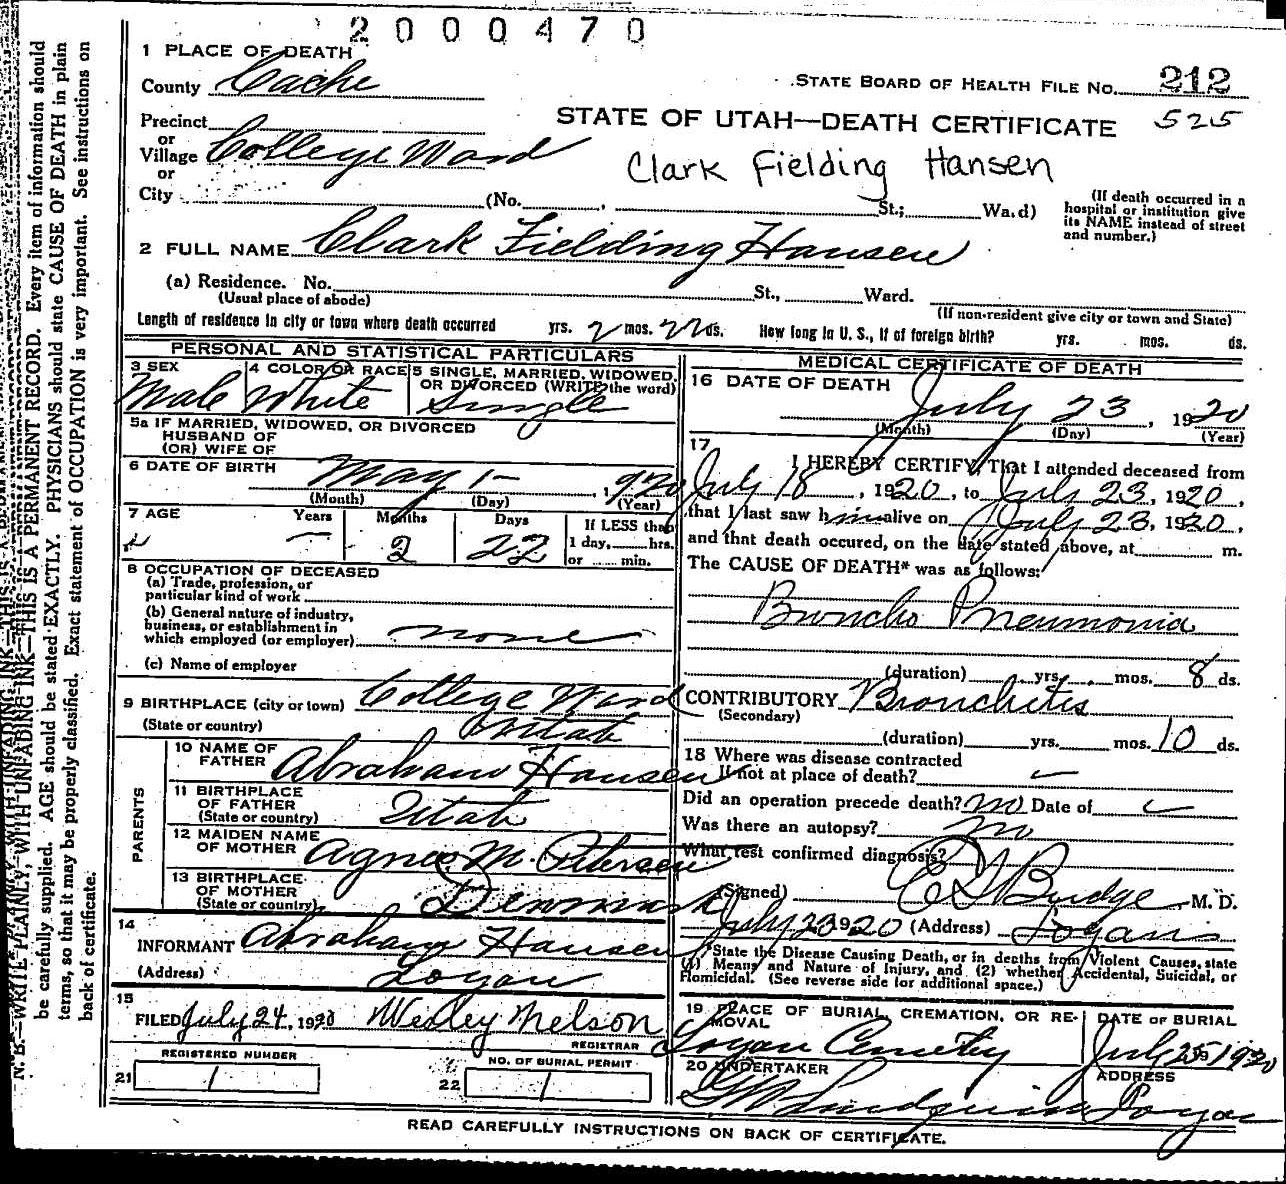 2000470
1 PLACE OF DEATH
County Cache
STATE BOARD OF HEALTH FILE No. 212
STATE OF UTAH—DEATH CERTIFICATE 525
Precinct
or
Village College Ward
or
Clark Fielding Hansen
City (No. , St.; Wa.d)
(If death occurred in a
hospital or institution give
its NAME instead of street
and number.)
2 FULL NAME Clark Fielding Hansen
(a) Residence. No. St., Ward.
(Usual place of abode)
(If non-resident give city or town and State)
Length of residence in city or town where death occurred yrs. 2 mos. 22 ds. How long in U. S., if of foreign birth? yrs. mos. ds.
PERSONAL AND STATISTICAL PARTICULARS
3 SEX
Male
4 COLOR OR RACE
White
5 SINGLE, MARRIED, WIDOWED,
OR DIVORCED (WRITE the word)
Single
5a IF MARRIED, WIDOWED, OR DIVORCED
HUSBAND OF
(OR) WIFE OF
6 DATE OF BIRTH
May 1- , 1920
(Month) (Day) (Year)
7 AGE Years Months Days
2 22
If LESS than
1 day, hrs.
or min.
8 OCCUPATION OF DECEASED
(a) Trade, profession, or
particular kind of work
(b) General nature of industry,
business, or establishment in
which employed (or employer) none
(c) Name of employer
9 BIRTHPLACE (city or town) College Ward
(State or country) Utah
PARENTS
10 NAME OF
FATHER Abraham Hansen
11 BIRTHPLACE
OF FATHER
(State or country) Utah
12 MAIDEN NAME
OF MOTHER Agnes M. Petersen
13 BIRTHPLACE
OF MOTHER
(State or country) Denmark
14
INFORMANT Abraham Hansen
(Address) Logan
15
FILED July 24, 1920 Wesley Nelson
REGISTRAR
REGISTERED NUMBER
21 1
NO. OF BURIAL PERMIT
22 1
MEDICAL CERTIFICATE OF DEATH
16 DATE OF DEATH
July 23, 1920
(Month) (Day) (Year)
17
I HEREBY CERTIFY, That I attended deceased from
July 18, 1920, to July 23, 1920,
that I last saw him alive on July 23, 1920,
and that death occured, on the date stated above, at m.
The CAUSE OF DEATH* was as follows:
Broncho Pneumonia
(duration) yrs. mos. 8 ds.
CONTRIBUTORY Bronchitis
(Secondary)
(duration) yrs. mos. 10 ds.
18 Where was disease contracted
If not at place of death?
Did an operation precede death? no Date of
Was there an autopsy? no
What test confirmed diagnosis?
(Signed) Budge, M. D.
July 23 1920 (Address) Logan
*State the Disease Causing Death, or in deaths from Violent Causes, state
(1) Means and Nature of Injury, and (2) whether Accidental, Suicidal, or
Homicidal. (See reverse side for additional space.)
19 PLACE OF BURIAL, CREMATION, OR RE-
MOVAL
Logan Cemetery
DATE OF BURIAL
July 25 1920
20 UNDERTAKER
Lindquist
ADDRESS
Logan
READ CAREFULLY INSTRUCTIONS ON BACK OF CERTIFICATE.
N. B.—WRITE PLAINLY, WITH UNFADING INK—THIS IS A PERMANENT RECORD. Every item of information should
be carefully supplied. AGE should be stated EXACTLY. PHYSICIANS should state CAUSE OF DEATH in plain
terms, so that it may be properly classified. Exact statement of OCCUPATION is very important. See instructions on
back of certificate.